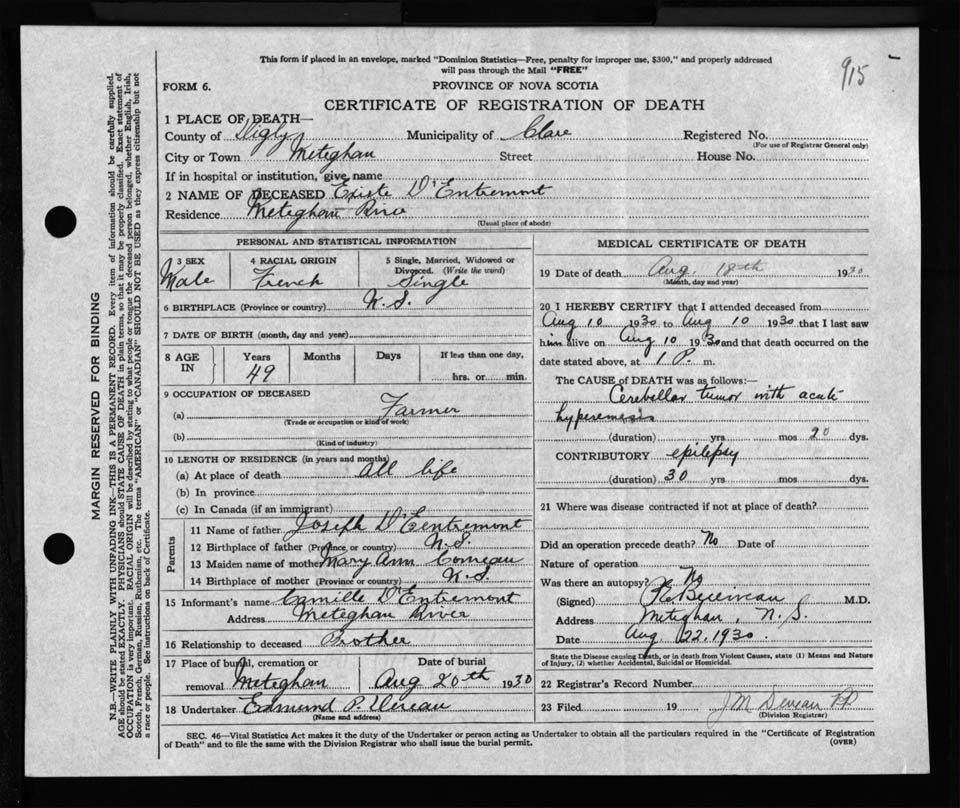 This form if placed in an envelope, marked "Dominion Statistics—Free, penalty for improper use, $300," and properly addressed
will pass through the Mail "FREE"
915
FORM 6.
PROVINCE OF NOVA SCOTIA
CERTIFICATE OF REGISTRATION OF DEATH
1 PLACE OF DEATH—
County of Digby Municipality of Clare Registered No.
(For use of Registrar General only)
City or Town Meteghan Street House No.
If in hospital or institution, give name
2 NAME OF DECEASED D'Entremont
Residence Meteghan River
(Usual place of abode)
PERSONAL AND STATISTICAL INFORMATION
3 SEX 4 RACIAL ORIGIN 5 Single, Married, Widowed or
Divorced. (Write the word)
Male French Single
6 BIRTHPLACE (Province or country) N.S.
7 DATE OF BIRTH (month, day and year)
8 AGE IN Years Months Days If less than one day,
49 hrs. or min.
9 OCCUPATION OF DECEASED
(a) Farmer
(Trade or occupation or kind of work)
(b)
(Kind of industry)
10 LENGTH OF RESIDENCE (in years and months)
(a) At place of death all life
(b) In province
(c) In Canada (if an immigrant)
Parents
11 Name of father Joseph D'Entremont
12 Birthplace of father (Province, or country) N.S.
13 Maiden name of mother Mary Ann Comeau
14 Birthplace of mother (Province or country) N.S.
15 Informant's name Camille D'Entremont
Address Meteghan River
16 Relationship to deceased Brother
17 Place of burial, cremation or Date of burial
removal Meteghan Aug 20th 1930
18 Undertaker Edmund P. Deveau
(Name and address)
MEDICAL CERTIFICATE OF DEATH
19 Date of death Aug. 18th 1930
(Month, day and year)
20 I HEREBY CERTIFY that I attended deceased from
Aug 10 1930 to Aug 10 1930 that I last saw
him alive on Aug 10 1930 and that death occurred on the
date stated above, at 1 P. m.
The CAUSE of DEATH was as follows:—
Cerebellar tumor with acute
hyperemesis
(duration) yrs mos 20 dys.
CONTRIBUTORY epilepsy
(duration) 30 yrs mos dys.
21 Where was disease contracted if not at place of death?
Did an operation precede death? No Date of
Nature of operation
Was there an autopsy? No
(Signed) M.D.
Address Meteghan, N.S.
Date Aug 22, 1930.
State the Disease causing Death, or in death from Violent Causes, state (1) Means and Nature
of Injury, (2) whether Accidental, Suicidal or Homicidal.
22 Registrar's Record Number
23 Filed 19 J M Deveau
(Division Registrar)
SEC. 46—Vital Statistics Act makes it the duty of the Undertaker or person acting as Undertaker to obtain all the particulars required in the "Certificate of Registration
of Death" and to file the same with the Division Registrar who shall issue the burial permit. (OVER)
MARGIN RESERVED FOR BINDING
N.B.—WRITE PLAINLY WITH UNFADING INK—THIS IS A PERMANENT RECORD. Every item of information should be carefully supplied.
AGE should be stated EXACTLY. PHYSICIANS should STATE CAUSE OF DEATH in plain terms, so that it may be properly classified. Exact statement of
OCCUPATION is very important. RACIAL ORIGIN will be described by stating to what people or tongue the deceased person belonged, whether English, Irish,
Scotch, French, German, Russian, Ruthenian, etc. The terms "AMERICAN" or "CANADIAN" SHOULD NOT BE USED as they express citizenship but not
a race or people. See instructions on back of Certificate.